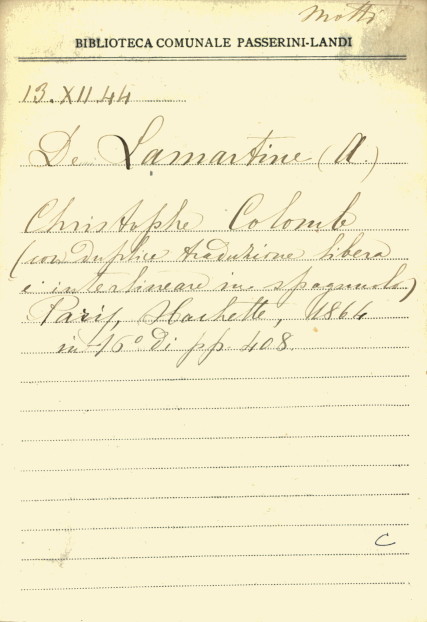 Motti
BIBLIOTECA COMUNALE PASSERINI-LANDI
13.XII.44
De Lamartine (A.)
Christophe Colomb
(con duplice traduzione libera
e interlineare in spagnuolo)
Paris, Hachette, 1864
in-16° di pp. 408.
C